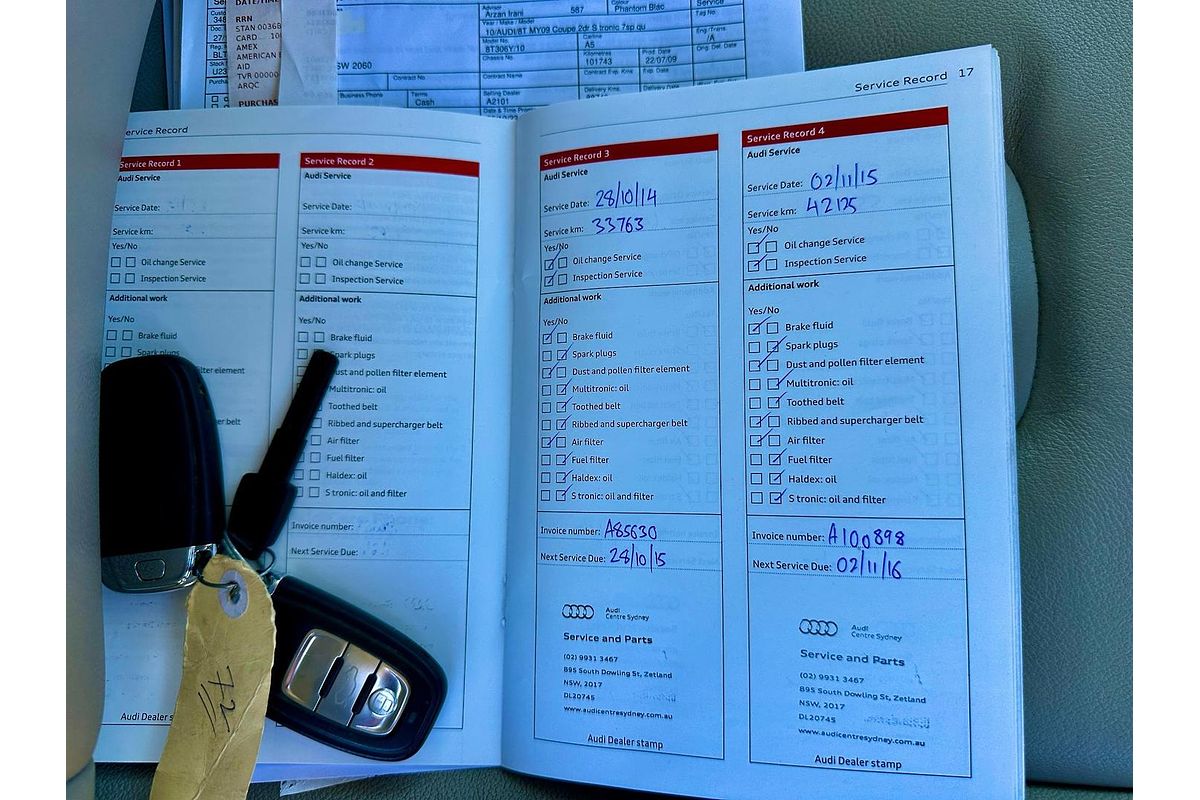 DATE/TIME
RRN
STAN 0036
CARD
AMEX
AMERICAN
AID
TVR 00000
ARQC
PURCHAS
Advisor
Arzan Irani
587
Colour
Phantom Blac
Service
Tag No.
Year / Make / Model
10/AUDI/8T MY09 Coupe 2dr S tronic 7sp qu
Model No.
8T306Y/10
Carline
A5
Eng./Trans.
/A
Chassis No.
Kilometres
101743
Prod. Date
22/07/09
Orig. Del. Date
SW 2060
Contract No.
Contract Name
Contract Exp. Kms
Exp. Date
Business Phone
Terms
Cash
Selling Dealer
A2101
Delivery Kms.
Delivery Date
Date & Time Prom
Service Record
Service Record 1
Audi Service
Service Date:
Service km:
Yes/No
Oil change Service
Inspection Service
Additional work
Yes/No
Brake fluid
Spark plugs
ilter element
er belt
Audi Dealer s
Service Record 2
Audi Service
Service Date:
Service km:
Yes/No
Oil change Service
Inspection Service
Additional work
Yes/No
Brake fluid
Spark plugs
Dust and pollen filter element
Multitronic: oil
Toothed belt
Ribbed and supercharger belt
Air filter
Fuel filter
Haldex: oil
S tronic: oil and filter
Invoice number:
Next Service Due:
72
Service Record 17
Service Record 3
Audi Service
Service Date: 28/10/14
Service km: 33763
Yes/No
Oil change Service
Inspection Service
Additional work
Yes/No
Brake fluid
Spark plugs
Dust and pollen filter element
Multitronic: oil
Toothed belt
Ribbed and supercharger belt
Air filter
Fuel filter
Haldex: oil
S tronic: oil and filter
Invoice number: A85630
Next Service Due: 28/10/15
Audi
Centre Sydney
Service and Parts
(02) 9931 3467
895 South Dowling St, Zetland
NSW, 2017
DL20745
www.audicentresydney.com.au
Audi Dealer stamp
Service Record 4
Audi Service
Service Date: 02/11/15
Service km: 42125
Yes/No
Oil change Service
Inspection Service
Additional work
Yes/No
Brake fluid
Spark plugs
Dust and pollen filter element
Multitronic: oil
Toothed belt
Ribbed and supercharger belt
Air filter
Fuel filter
Haldex: oil
S tronic: oil and filter
Invoice number: A100898
Next Service Due: 02/11/16
Audi
Centre Sydney
Service and Parts
(02) 9931 3467
895 South Dowling St, Zetland
NSW, 2017
DL20745
www.audicentresydney.com.au
Audi Dealer stamp